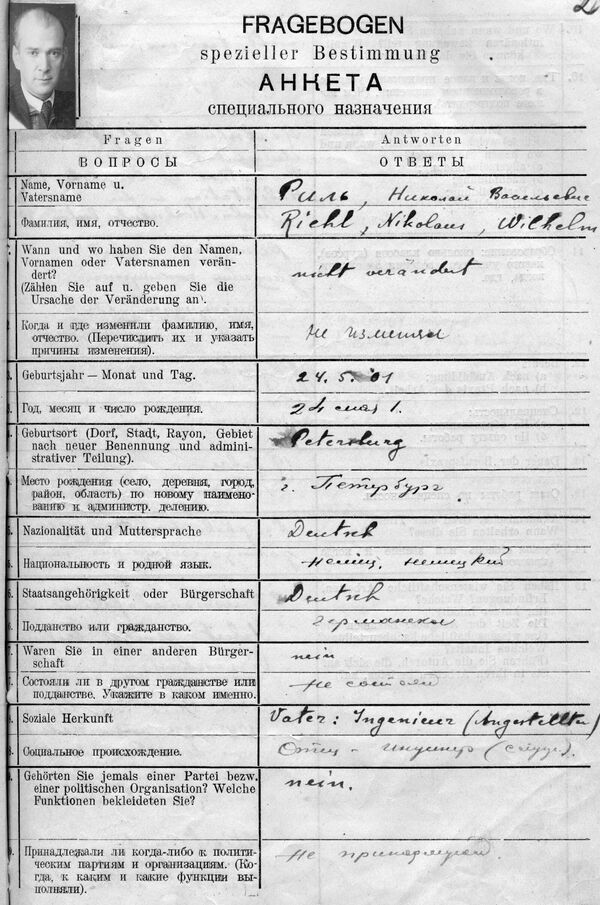 FRAGEBOGEN
spezieller Bestimmung
АНКЕТА
специального назначения
Fragen
ВОПРОСЫ
Antworten
ОТВЕТЫ
Name, Vorname u.
Vatersname
Риль, Николай Васильевич
Фамилия, имя, отчество.
Riehl, Nikolaus, Wilhelm
Wann und wo haben Sie den Namen,
Vornamen oder Vatersnamen verän-
dert?
(Zählen Sie auf u. geben Sie die
Ursache der Veränderung an).
nicht verändert
Когда и где изменили фамилию, имя,
отчество. (Перечислить их и указать
причины изменения).
Не изменял
Geburtsjahr — Monat und Tag.
24. 5. 01
Год, месяц и число рождения.
24 мая 1.
Geburtsort (Dorf, Stadt, Rayon, Gebiet
nach neuer Benennung und admini-
strativer Teilung).
Petersburg
Место рождения (село, деревня, город,
район, область) по новому наимено-
ванию и администр. делению.
г. Петербург
Nazionalität und Muttersprache
Deutsch
Национальность и родной язык.
немец, немецкий
Staatsangehörigkeit oder Bürgerschaft
Deutsch
Подданство или гражданство.
Waren Sie in einer anderen Bürger-
schaft
nein
Состояли ли в другом гражданстве или
подданстве. Укажите в каком именно.
Не состоял
Soziale Herkunft
Vater: Ingenieur (Angestellter)
Социальное происхождение.
Отец - инженер
Gehörten Sie jemals einer Partei bezw.
einer politischen Organisation? Welche
Funktionen bekleideten Sie?
nein.
Принадлежали ли когда-либо к полити-
ческим партиям и организациям. (Ко-
гда, к каким и какие функции вы-
полняли).
Не принадлежал.